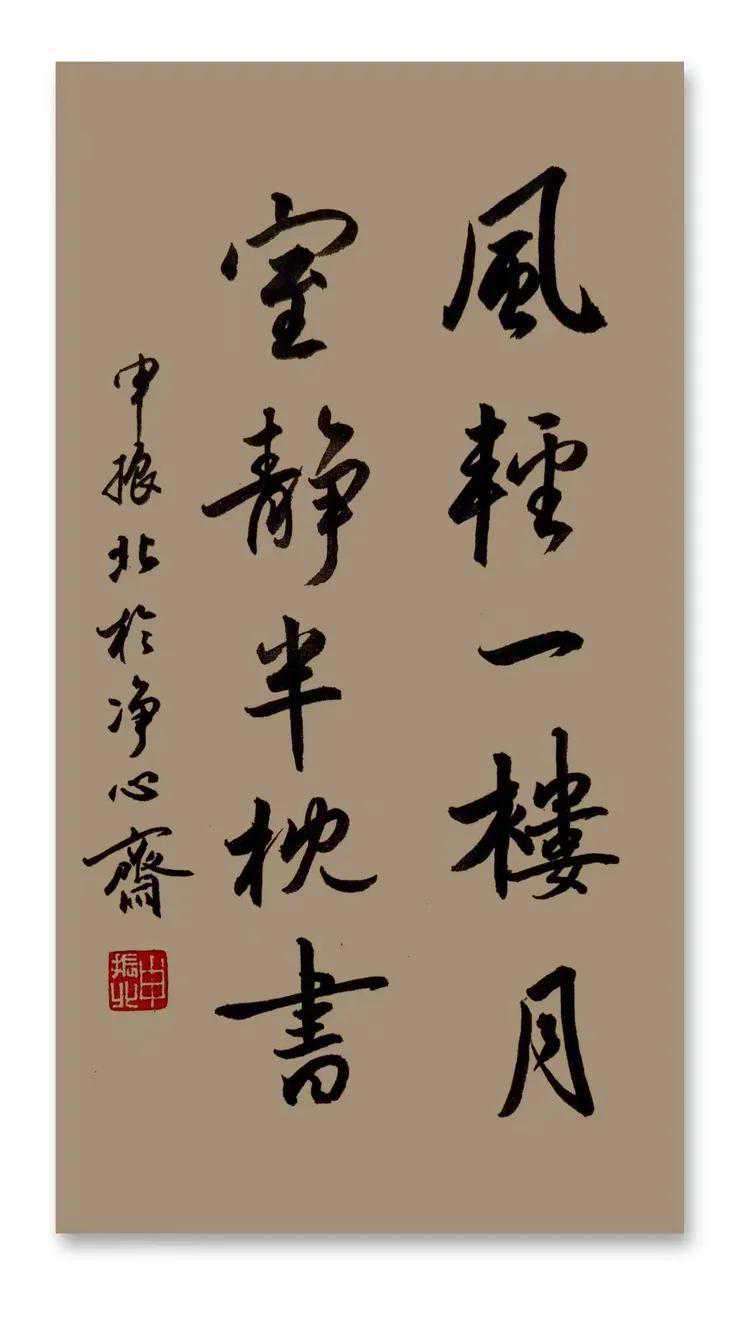 風輕一樓月
室靜半枕書
申振北於净心齋
申振北